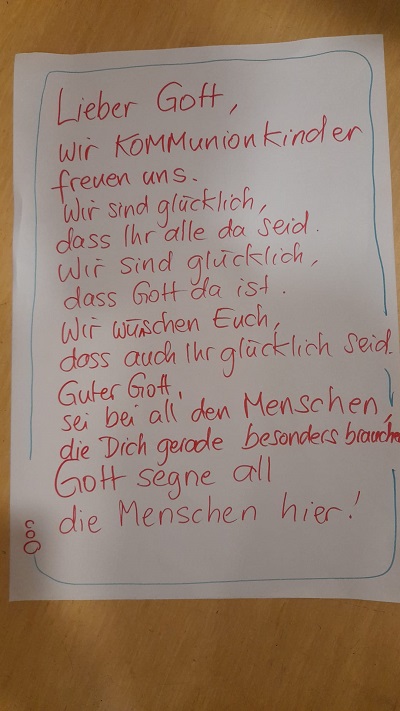 Lieber Gott,
wir Kommunionkinder
freuen uns.
Wir sind glücklich,
dass Ihr alle da seid.
Wir sind glücklich,
dass Gott da ist.
Wir wünschen Euch,
dass auch Ihr glücklich seid.
Guter Gott,
sei bei all den Menschen,
die Dich gerade besonders brauchen
Gott segne all
die Menschen hier!